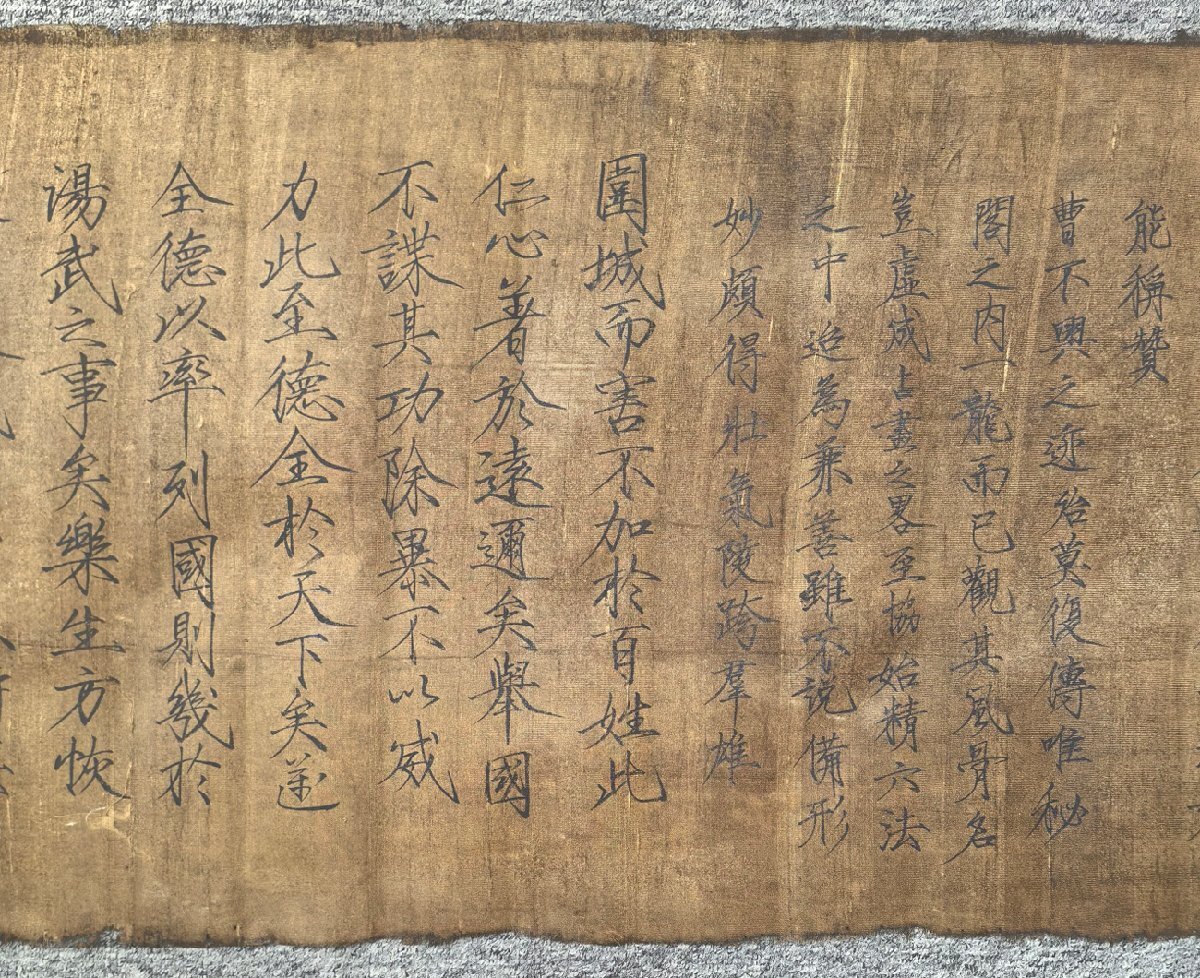 能稱贊
曹不興之迹殆莫復傳唯秘
閣之内一龍而已觀其風骨名
豈虛成上畫之畧至協始精六法
之中迨為兼善雖不說備形
妙頗得壯氣陵跨羣雄
圍城而害不加於百姓此
仁心著於遠邇矣舉國
不謀其功除暴不以威
力此至德全於天下矣邁
全德以率列國則幾於
湯武之事矣樂生方恢